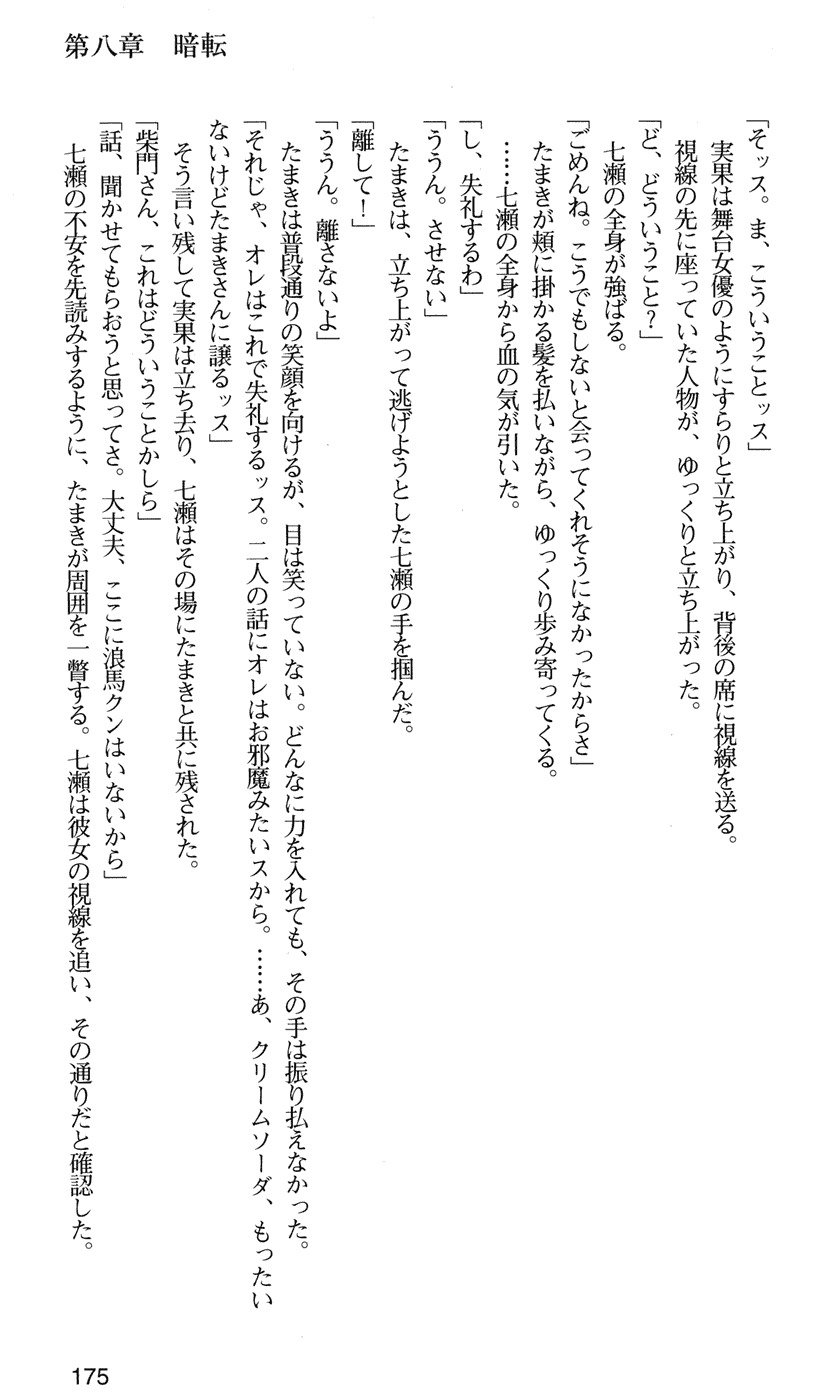 第八章　暗転
「そッス。ま、こういうことッス」
　実果は舞台女優のようにすらりと立ち上がり、背後の席に視線を送る。
　視線の先に座っていた人物が、ゆっくりと立ち上がった。
「ど、どういうこと？」
　七瀬の全身が強ばる。
「ごめんね。こうでもしないと会ってくれそうになかったからさ」
　たまきが頬に掛かる髪を払いながら、ゆっくり歩み寄ってくる。
　……七瀬の全身から血の気が引いた。
「し、失礼するわ」
「ううん。させない」
　たまきは、立ち上がって逃げようとした七瀬の手を掴んだ。
「離して！」
「ううん。離さないよ」
　たまきは普段通りの笑顔を向けるが、目は笑っていない。どんなに力を入れても、その手は振り払えなかった。
「それじゃ、オレはこれで失礼するッス。二人の話にオレはお邪魔みたいスから。……あ、クリームソーダ、もったい
ないけどたまきさんに譲るッス」
　そう言い残して実果は立ち去り、七瀬はその場にたまきと共に残された。
「柴門さん、これはどういうことかしら」
「話、聞かせてもらおうと思ってさ。大丈夫、ここに浪馬クンはいないから」
　七瀬の不安を先読みするように、たまきが周囲を一瞥する。七瀬は彼女の視線を追い、その通りだと確認した。
175